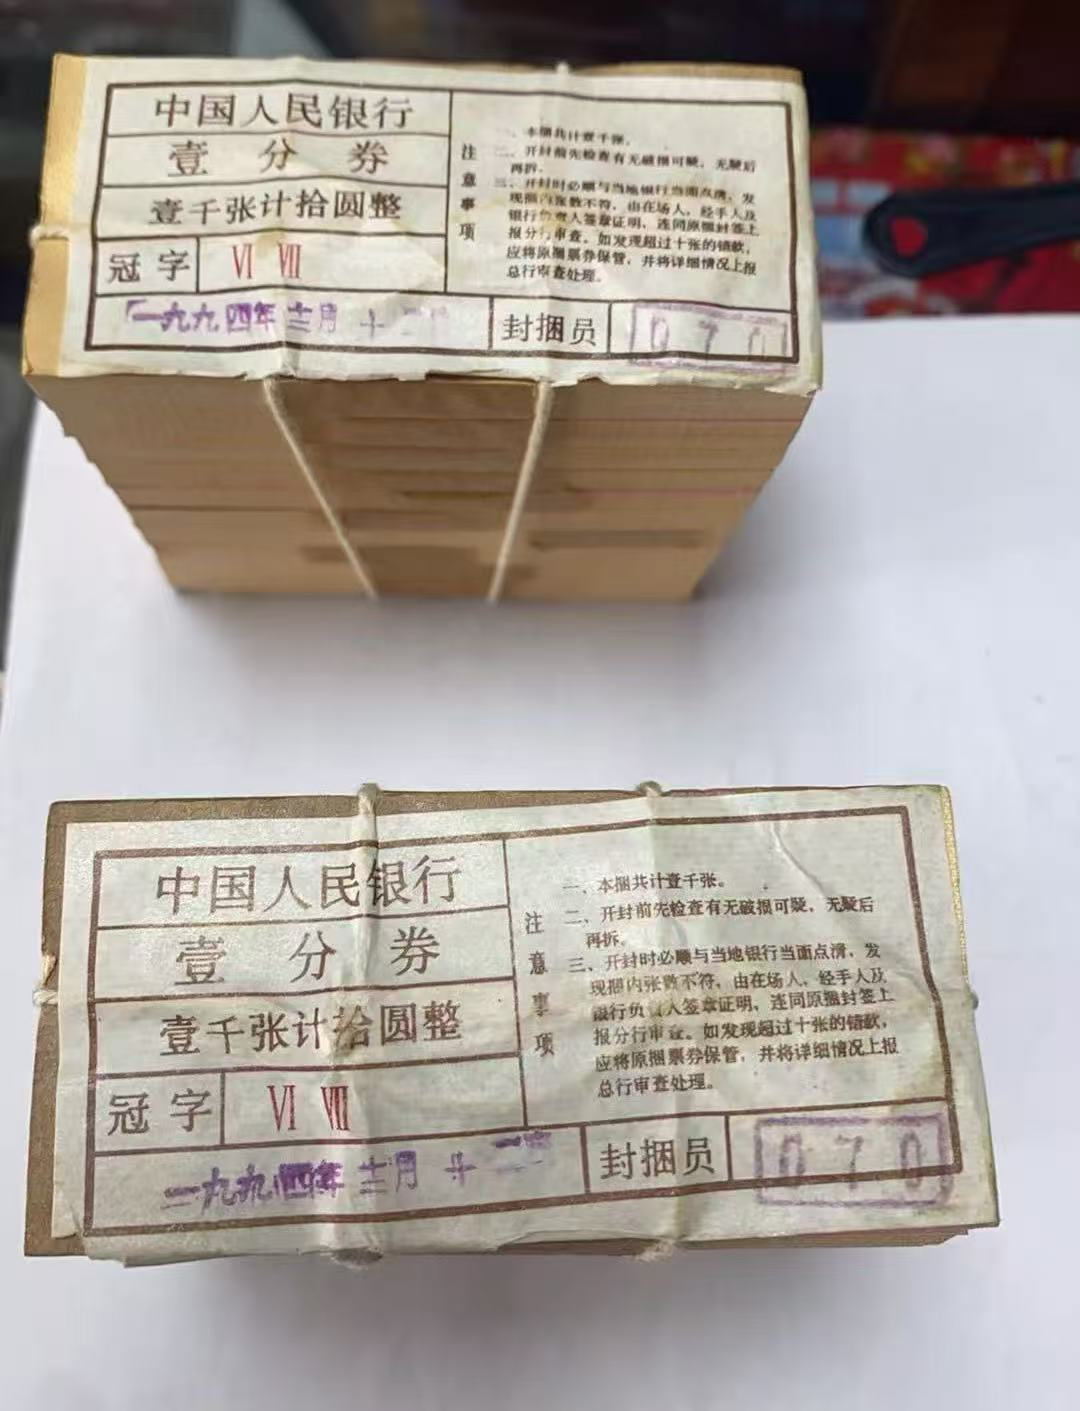 中国人民银行
壹分券
壹千张计拾圆整
冠字 Ⅵ Ⅶ
一九九四年十二月十二
封捆员 070
注意事项
一、本捆共计壹千张。
二、开封前先检查有无破损可疑，无疑后
再拆。
三、开封时必顺与当地银行当面点清，发
现捆内张数不符，由在场人，经手人及
银行负责人签章证明，连同原捆封签上
报分行审查。如发现超过十张的错款，
应将原捆票券保管，并将详细情况上报
总行审查处理。
中国人民银行
壹分券
壹千张计拾圆整
冠字 Ⅵ Ⅷ
一九九四年十二月十二
封捆员 070
注意事项
一、本捆共计壹千张。
二、开封前先检查有无破损可疑，无疑后
再拆。
三、开封时必顺与当地银行当面点清，发
现捆内张数不符，由在场人，经手人及
银行负责人签章证明，连同原捆封签上
报分行审查。如发现超过十张的错款，
应将原捆票券保管，并将详细情况上报
总行审查处理。